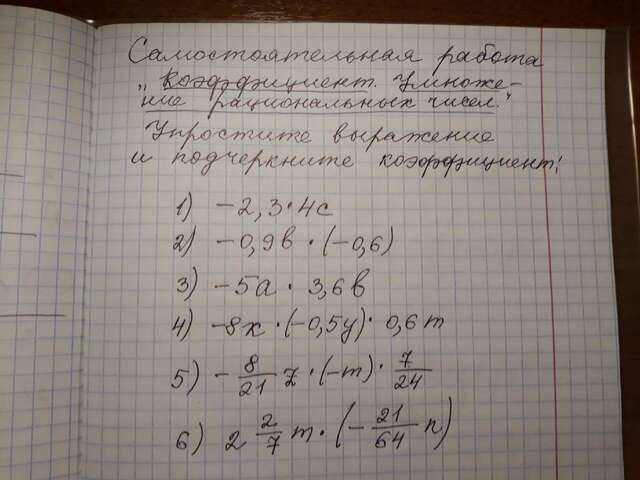 Самостоятельная работа
„Коэффициент. Умноже-
ние рациональных чисел."
Упростите выражение
и подчеркните коэффициент!
1) -2,3·4c
2) -0,9в·(-0,6)
3) -5a·3,6в
4) -8x·(-0,5y)·0,6m
5) -8/21 z·(-m)·7/24
6) 2 2/7 m·(-21/64 n)